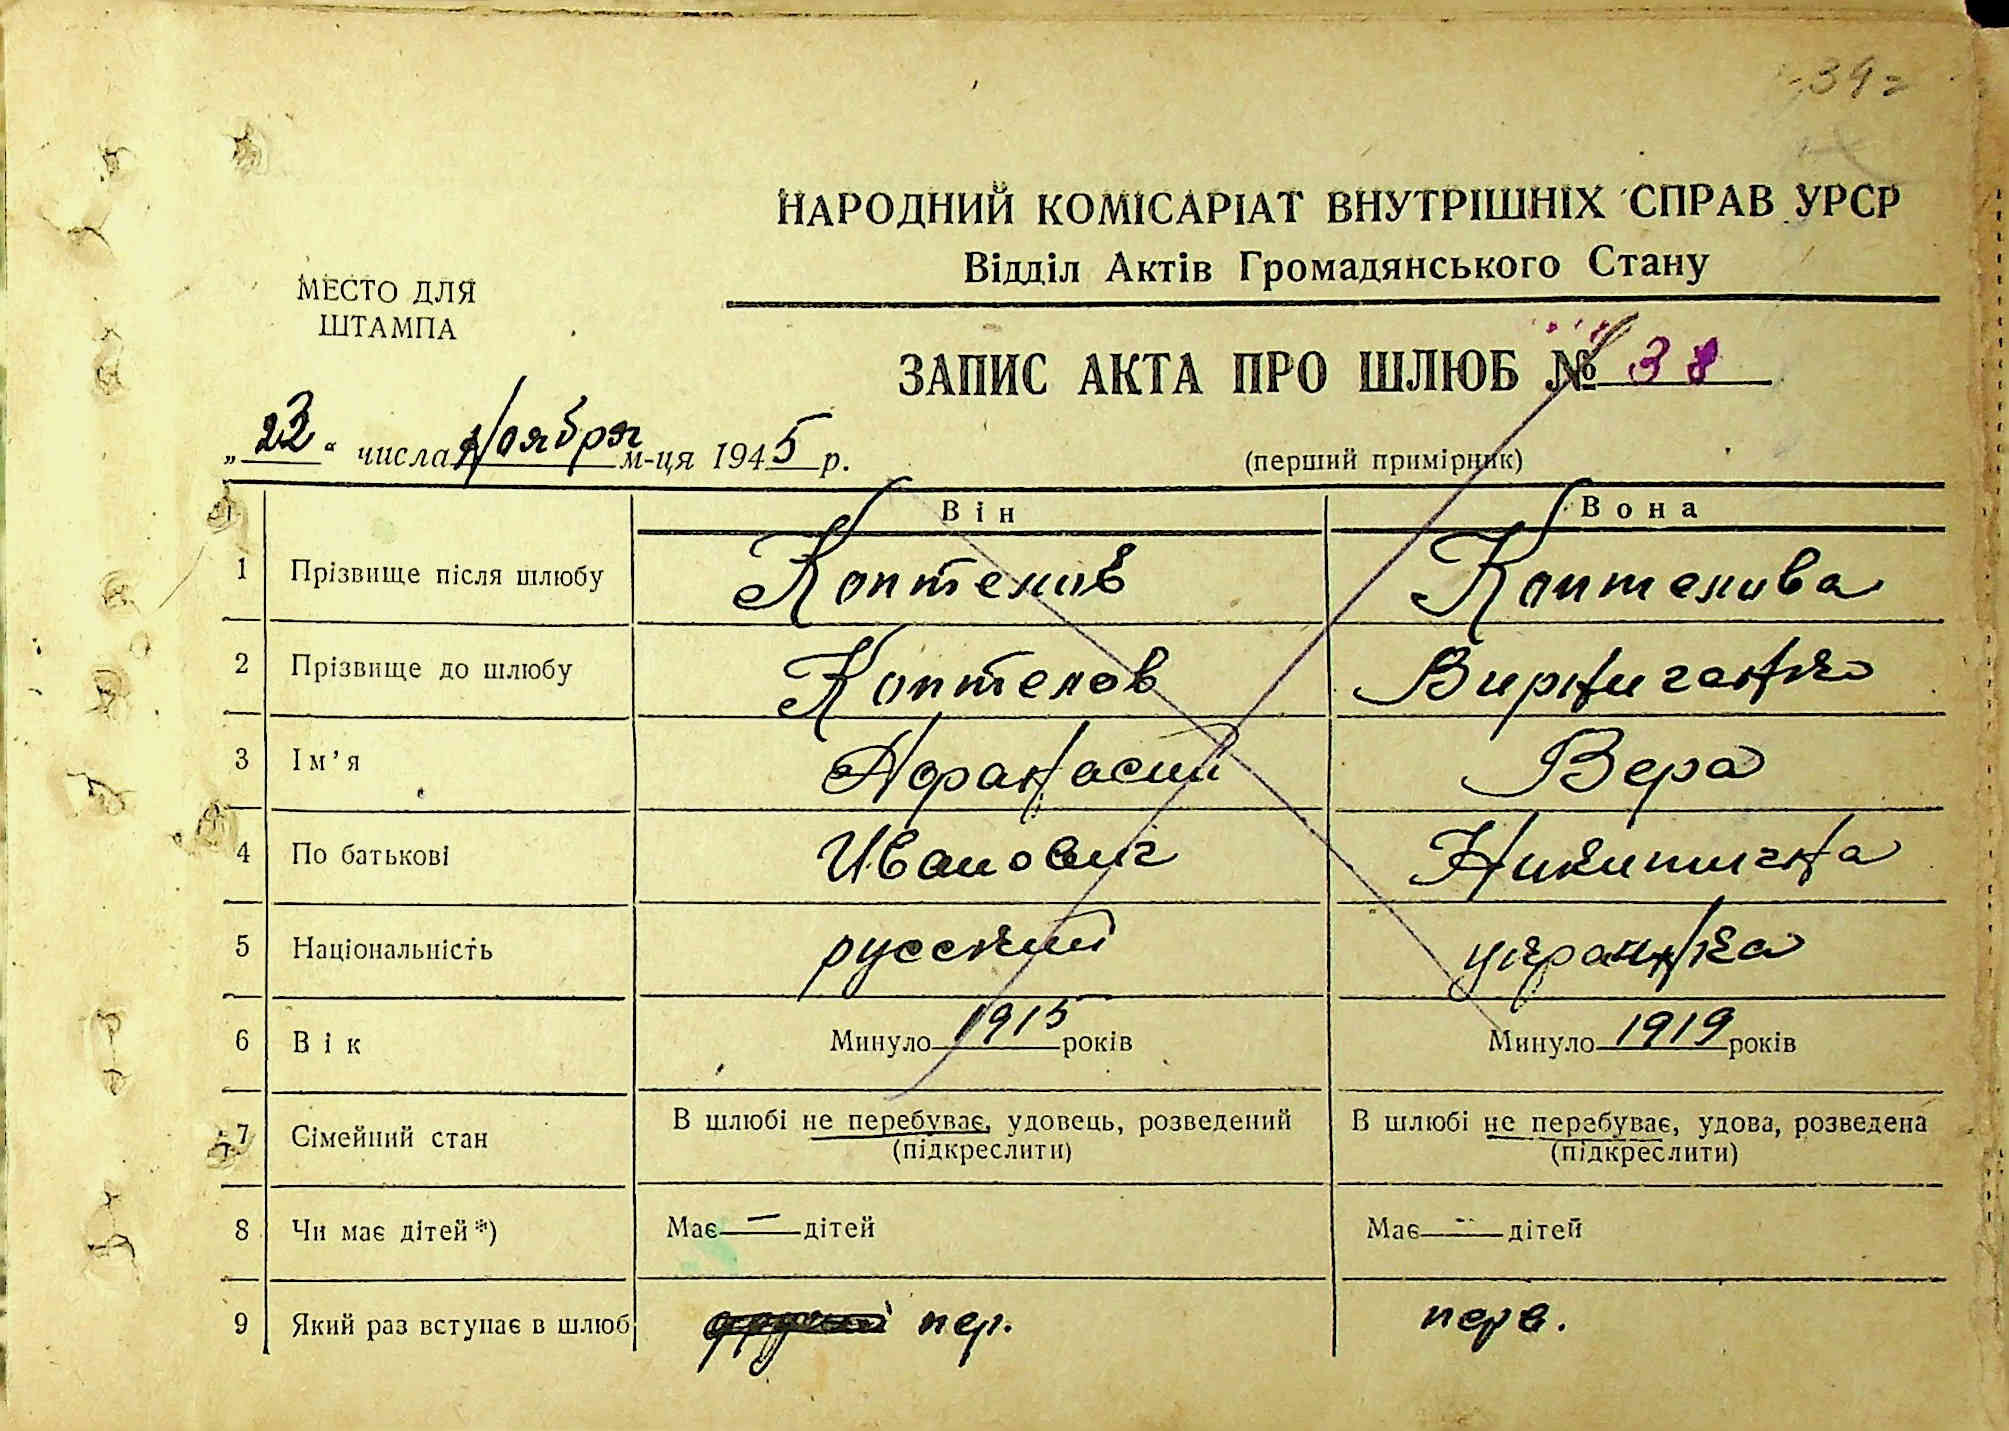 -39-
НАРОДНИЙ КОМІСАРІАТ ВНУТРІШНІХ СПРАВ УРСР
Відділ Актів Громадянського Стану
МЕСТО ДЛЯ
ШТАМПА
ЗАПИС АКТА ПРО ШЛЮБ № 38
„23“ числа Ноября м-ця 1945 р.
(перший примірник)
Він Вона
1 Прізвище після шлюбу Коптелов Коптелова
2 Прізвище до шлюбу Коптелов
3 Ім’я Афанасий Вера
4 По батькові Иванович Никитична
5 Національність русский украинка
6 Вік Минуло 1915 років Минуло 1919 років
7 Сімейний стан В шлюбі не перебуває, удовець, розведений В шлюбі не перебуває, удова, розведена
(підкреслити) (підкреслити)
8 Чи має дітей*) Має — дітей Має — дітей
9 Який раз вступає в шлюб пер. перв.